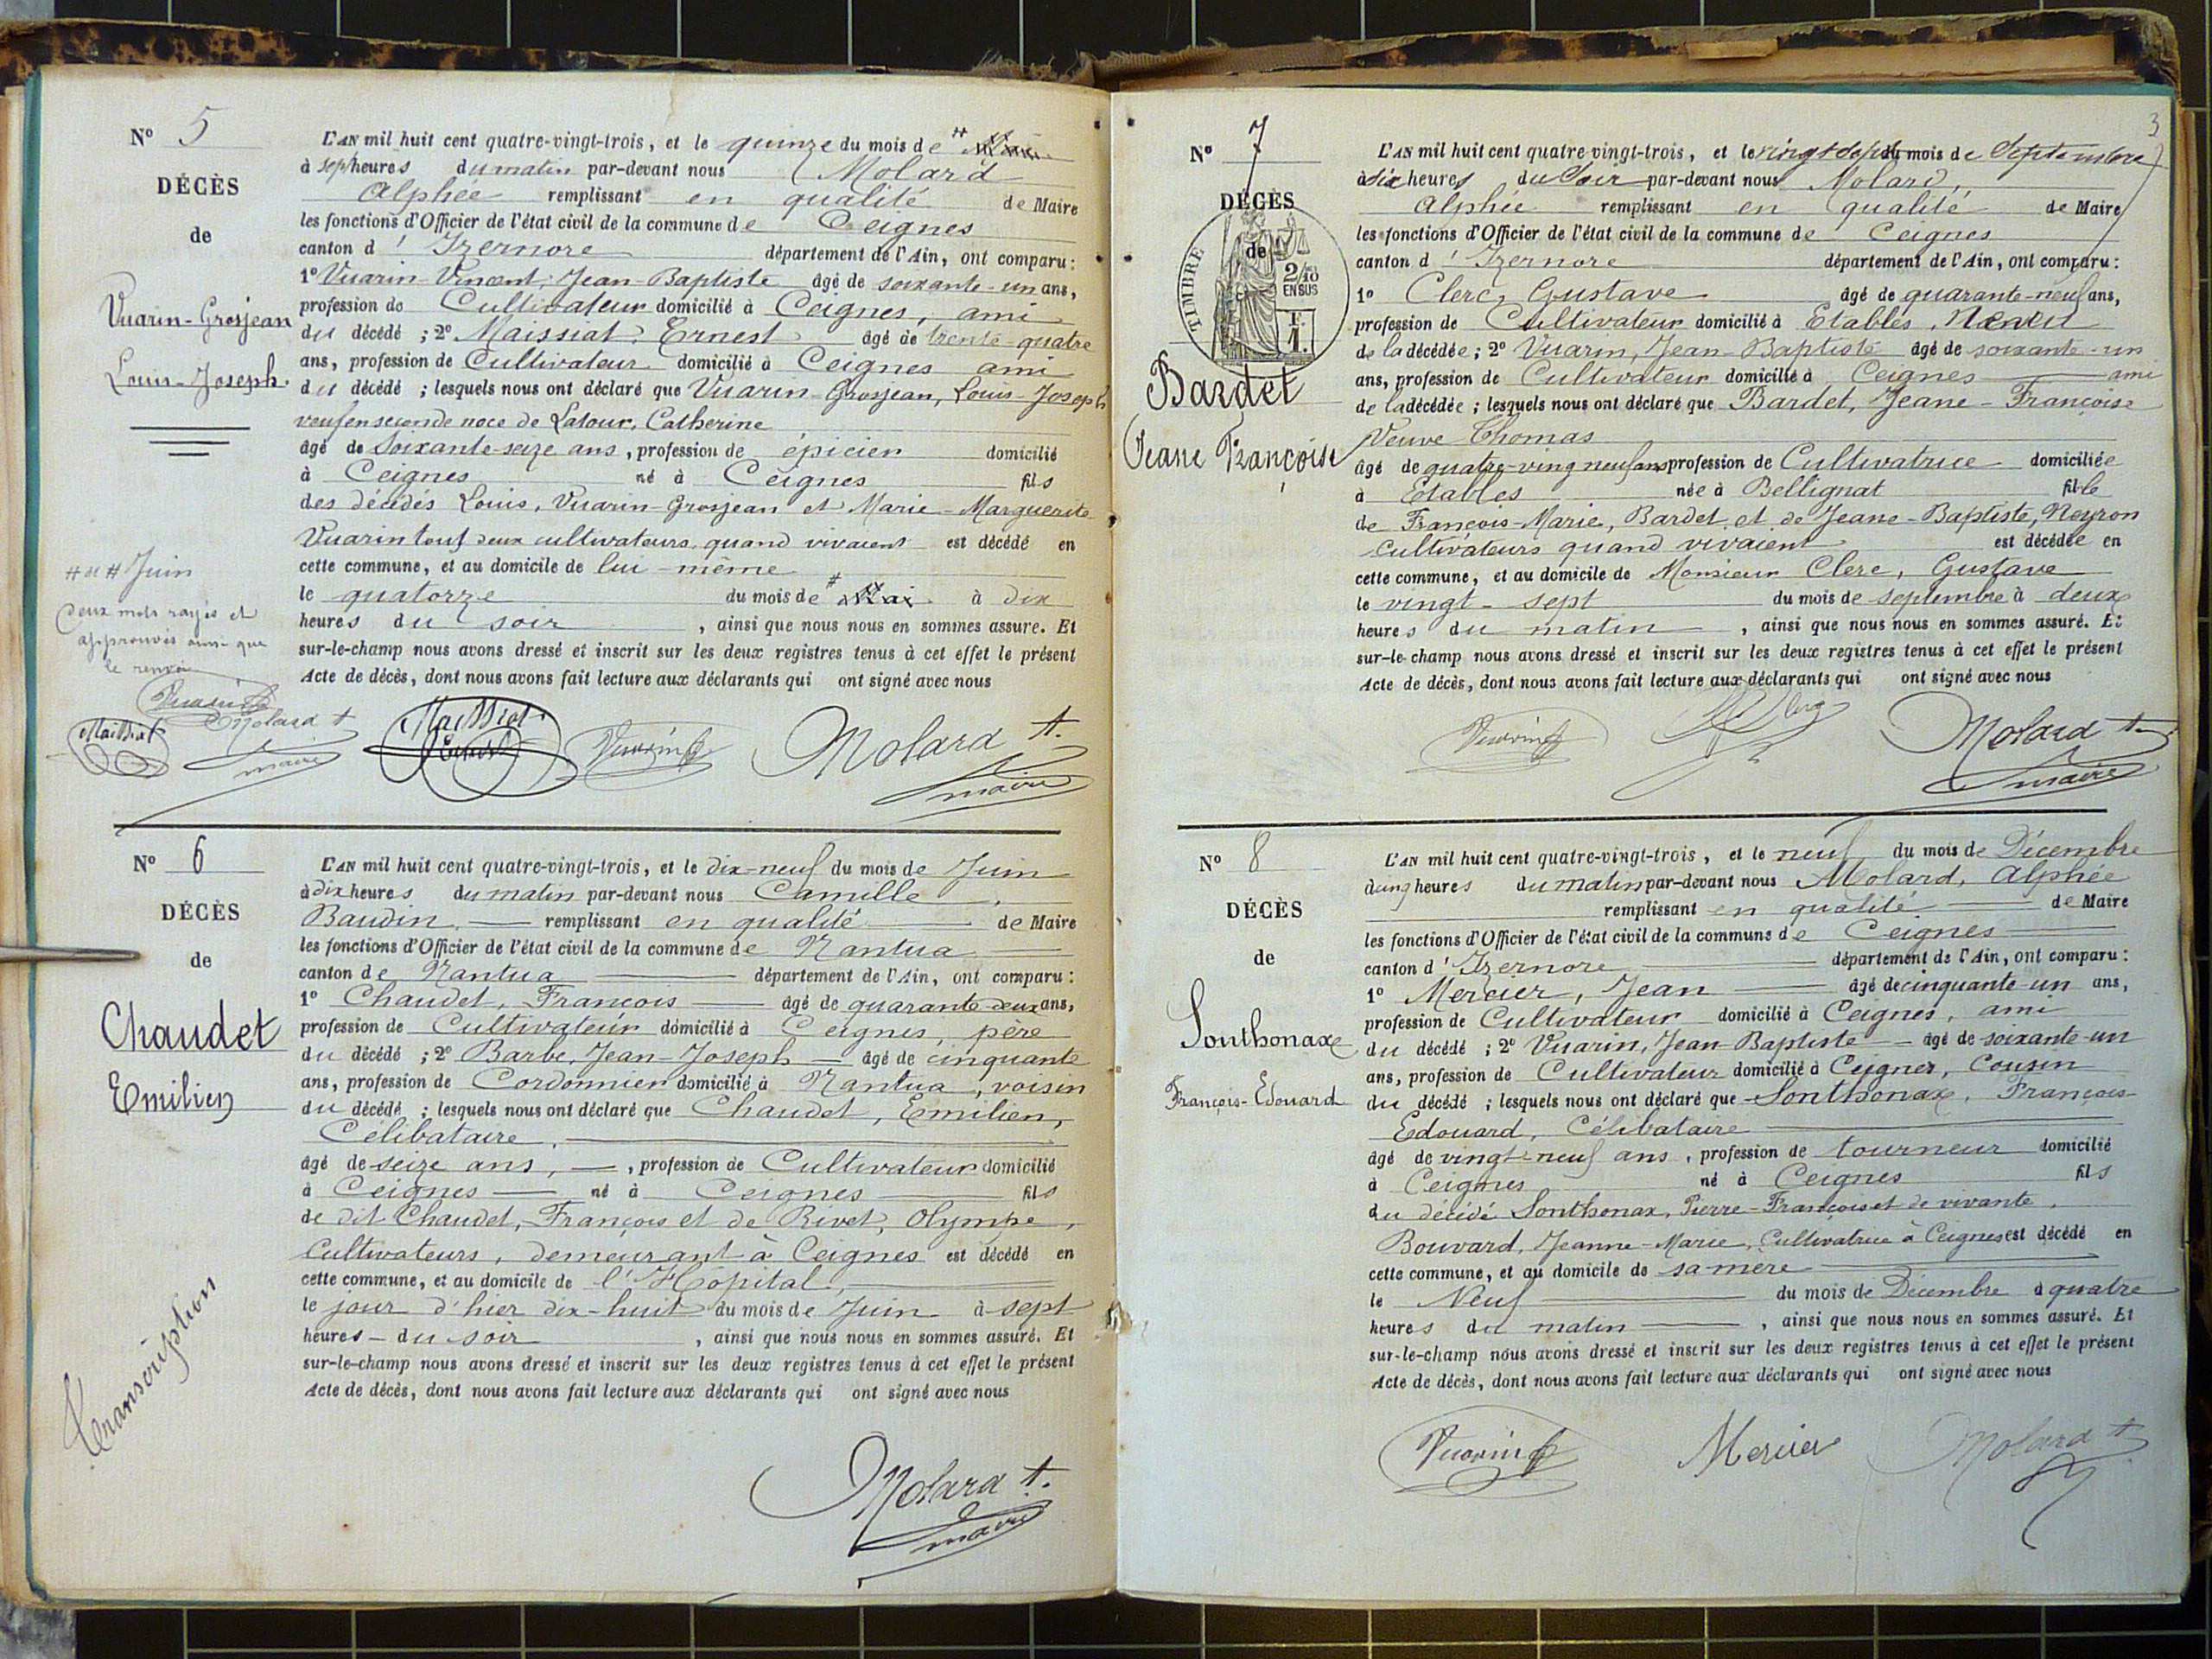 Nº 5
DÉCÈS
de
Vuarin-Grosjean
Louis-Joseph.
L'AN mil huit cent quatre-vingt-trois, et le quinze du mois de # Mai
à sept heures du matin par-devant nous Molard
Alphée remplissant en qualité de Maire
les fonctions d'Officier de l'état civil de la commune de Ceignes
canton d' Izernore département de l'Ain, ont comparu :
1º Vuarin-Vincent, Jean-Baptiste âgé de soixante-un ans,
profession de Cultivateur domicilié à Ceignes, ami
du décédé ; 2º Maissiat, Ernest âgé de trente-quatre
ans, profession de Cultivateur domicilié à Ceignes ami
du décédé ; lesquels nous ont déclaré que Vuarin-Grosjean, Louis-Joseph
veuf en seconde noce de Latour, Catherine
âgé de Soixante-seize ans, profession de épicier domicilié
à Ceignes né à Ceignes fils
des décédés Louis, Vuarin-Grosjean et Marie-Marguerite
Vuarin tous deux cultivateurs quand vivaient est décédé en
cette commune, et au domicile de lui-même
le quatorze du mois de # Mai à dix
heures du soir, ainsi que nous nous en sommes assuré. Et
sur-le-champ nous avons dressé et inscrit sur les deux registres tenus à cet effet le présent
Acte de décès, dont nous avons fait lecture aux déclarants qui ont signé avec nous
# et # Juin
Deux mots rayés et
approuvés ainsi que
le renvoi
Vuarin
Maissiat Molard A
maire
Maissiat
Ernest
Vuarin
Molard A.
maire
Nº 6
DÉCÈS
de
Chaudet
Emilien
Transcription
L'AN mil huit cent quatre-vingt-trois, et le dix-neuf du mois de Juin
à dix heures du matin par-devant nous Camille
Baudin remplissant en qualité de Maire
les fonctions d'Officier de l'état civil de la commune de Nantua
canton de Nantua département de l'Ain, ont comparu :
1º Chaudet, François âgé de quarante-deux ans,
profession de Cultivateur domicilié à Ceignes, père
du décédé ; 2º Barbe, Jean-Joseph âgé de cinquante
ans, profession de Cordonnier domicilié à Nantua, voisin
du décédé ; lesquels nous ont déclaré que Chaudet, Emilien,
Célibataire,
âgé de seize ans, profession de Cultivateur domicilié
à Ceignes né à Ceignes fils
de dit Chaudet, François et de Rivet, Olympe,
Cultivateurs, demeurant à Ceignes est décédé en
cette commune, et au domicile de l'Hôpital,
le jour d'hier dix-huit du mois de Juin à sept
heures du soir, ainsi que nous nous en sommes assuré. Et
sur-le-champ nous avons dressé et inscrit sur les deux registres tenus à cet effet le présent
Acte de décès, dont nous avons fait lecture aux déclarants qui ont signé avec nous
Molard A.
maire
3
Nº 7
DÉCÈS
de
TIMBRE
2/10
EN SUS
F.
1.
Bardet
Jeane Françoise
L'AN mil huit cent quatre-vingt-trois, et le vingt-sept du mois de Septembre
à six heures du Soir par-devant nous Molard,
Alphée remplissant en qualité de Maire
les fonctions d'Officier de l'état civil de la commune de Ceignes
canton d' Izernore département de l'Ain, ont comparu :
1º Clerc, Gustave âgé de quarante-neuf ans,
profession de Cultivateur domicilié à Etables, Neveu
de la décédée ; 2º Vuarin, Jean-Baptiste âgé de soixante-un
ans, profession de Cultivateur domicilié à Ceignes ami
de la décédée ; lesquels nous ont déclaré que Bardet, Jeane-Françoise
Veuve Thomas
âgé de quatre-ving neuf ans profession de Cultivatrice domiciliée
à Etables née à Bellignat fille
de François-Marie, Bardet et de Jeane-Baptiste, Neyron
cultivateurs quand vivaient est décédée en
cette commune, et au domicile de Monsieur Clerc, Gustave
le vingt-sept du mois de septembre à deux
heures du matin, ainsi que nous nous en sommes assuré. Et
sur-le-champ nous avons dressé et inscrit sur les deux registres tenus à cet effet le présent
Acte de décès, dont nous avons fait lecture aux déclarants qui ont signé avec nous
Vuarin
Clerc
Molard A
maire
Nº 8
DÉCÈS
de
Sonthonax
François-Edouard
L'AN mil huit cent quatre-vingt-trois, et le neuf du mois de Décembre
à cinq heures du matin par-devant nous Molard, Alphée
remplissant en qualité de Maire
les fonctions d'Officier de l'état civil de la commune de Ceignes
canton d' Izernore département de l'Ain, ont comparu :
1º Mercier, Jean âgé de cinquante-un ans,
profession de Cultivateur domicilié à Ceignes, ami
du décédé ; 2º Vuarin, Jean-Baptiste âgé de soixante-un
ans, profession de Cultivateur domicilié à Ceignes, Cousin
du décédé ; lesquels nous ont déclaré que Sonthonax, François-
Edouard, Célibataire
âgé de vingt-neuf ans, profession de tourneur domicilié
à Ceignes né à Ceignes fils
du décédé Sonthonax, Pierre-François et de vivante
Bouvard, Jeanne-Marie, Cultivatrice à Ceignes est décédé en
cette commune, et au domicile de sa mère
le Neuf du mois de Décembre à quatre
heures du matin, ainsi que nous nous en sommes assuré. Et
sur-le-champ nous avons dressé et inscrit sur les deux registres tenus à cet effet le présent
Acte de décès, dont nous avons fait lecture aux déclarants qui ont signé avec nous
Vuarin
Mercier
Molard A